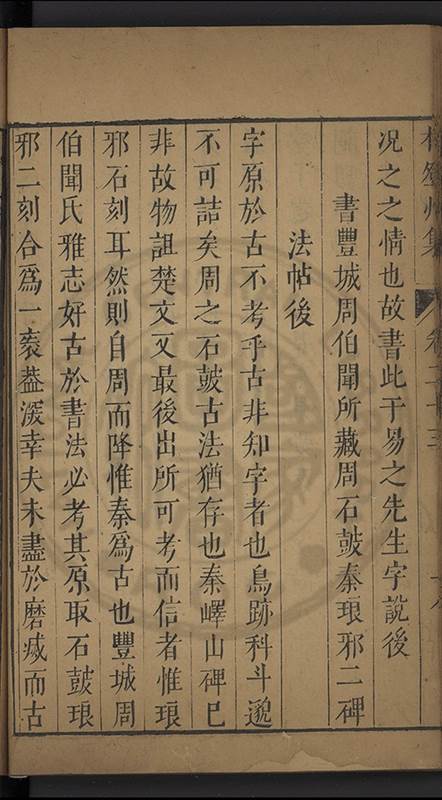 况之之情也故書此于易之先生字說後
書豐城周伯聞所藏周石皷秦琅邪二碑
法帖後
字原於古不考乎古非知字者也鳥跡科斗邈
不可詰矣周之石皷古法猶存也秦嶧山碑已
非故物詛楚文又最後出所可考而信者惟琅
邪石刻耳然則自周而降惟秦爲古也豐城周
伯聞氏雅志好古於書法必考其原取石皷琅
邪二刻合爲一袠葢深幸夫未盡於磨滅而古